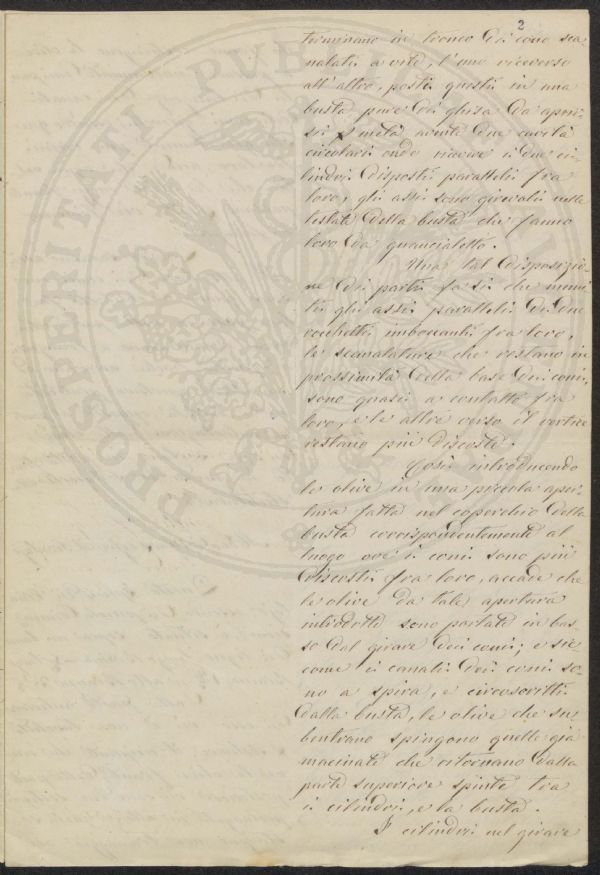 2
terminano in tronco di cono sca-
nalati a vite, l'uno viceverso
all'altro, posti questi in una
busta pure di ghisa da aprir-
si a metà, avente due cavità
circolari onde ricevere i due ci-
lindri disposti paralleli fra
loro, gli assi sono girevoli nelle
testate della busta che fanno
loro da guancialetto.
Una tal disposizio-
ne di parti fa sì che muni-
ti gli assi paralleli di due
rocchetti imboccanti fra loro,
le scanalature che restano in
prossimità della base dei coni,
sono quasi a contatto fra
loro, e le altre verso il vertice
restano più discoste.
Così introducendo
le olive in una piccola aper-
tura fatta nel coperchio della
busta corrispondentemente al
luogo ove i coni sono più
discosti fra loro, accade che
le olive da tale apertura
introdotte sono portate in bas-
so dal girare dei coni; e sic-
come i canali dei coni so-
no a spira, e circoscritti
dalla busta, le olive che su-
bentrano spingono quelle già
macinate che ritornano dalla
parte superiore spinte tra
i cilindri, e la busta.
I cilindri nel girare
PROSPERITATI PUBL